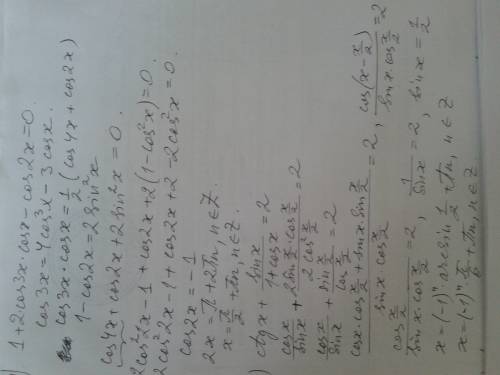 1+2cos3x·cosx-cos2x=0.
cos3x=4cos³x-3cosx.
cos3x·cosx=½(cos4x+cos2x)
1-cos2x=2sin²x
cos4x+cos2x+2sin²x=0.
2cos²2x-1+cos2x+2(1-cos²x)=0.
2cos²2x-1+cos2x+2-2cos²x=0.
cos2x=-1
2x=π+2πn, n∈Z.
x=π/2+πn, n∈Z.
) ctgx+sinx/(1+cosx)=2
cosx/sinx+(2sin x/2·cos x/2)/(2cos² x/2)=2
cosx/sinx+(sin x/2)/(cos x/2)=2
(cosx·cos x/2+sinx·sin x/2)/(sinx·cos x/2)=2, cos(x-x/2)/(sinx·cos x/2)=2
(cos x/2)/(sinx·cos x/2)=2, 1/sinx=2, sinx=1/2
x=(-1)ⁿ·arcsin 1/2+πn, n∈Z
x=(-1)ⁿ·π/6+πn, n∈Z